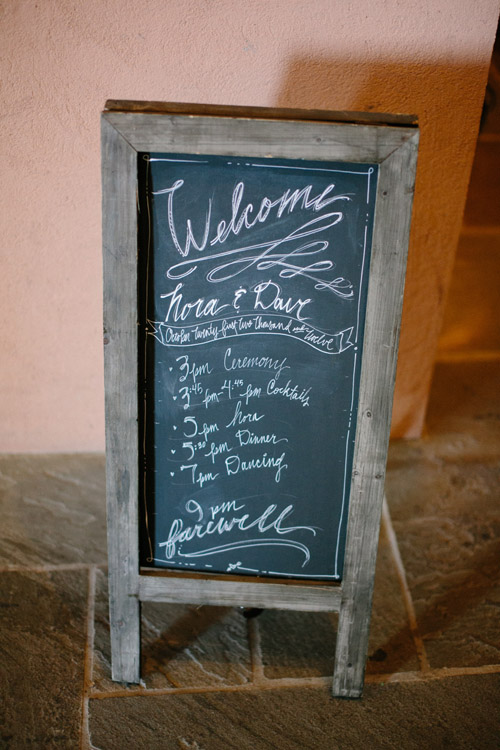 Welcome
Nora & Dave
October twenty-first two thousand and twelve
3pm Ceremony
3:45 pm-4:45 pm Cocktails
5pm hora
5:30 pm Dinner
7pm Dancing
9 pm
farewell